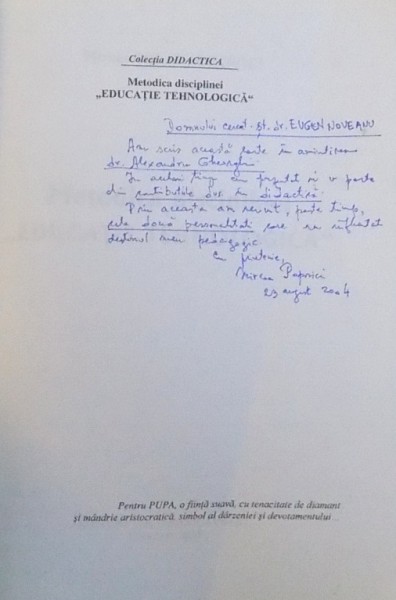 Colecția DIDACTICA
Metodica disciplinei
„EDUCAȚIE TEHNOLOGICĂ“
Domnului cercet. șt. dr. EUGEN NOVEANU
Am scris această carte în amintirea
dr. Alexandru Gheorghiu
În același timp am pregătit și o parte
din contribuțiile dvs. în didactică.
Prin aceasta am reunit, peste timp,
cele două personalități care au influențat
destinul meu pedagogic
Cu prietenie,
Mircea
23 august 2004
Pentru PUPA, o ființă suavă, cu tenacitate de diamant
și mândrie aristocratică, simbol al dârzeniei și devotamentului...